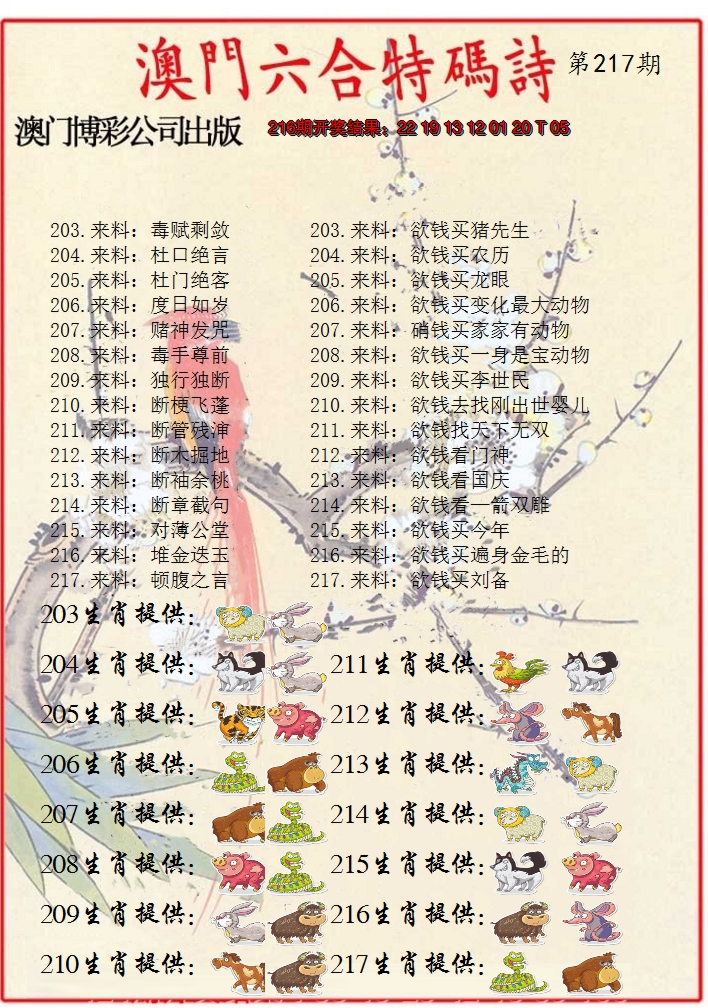 澳門六合特碼詩 第217期
澳门博彩公司出版 216期开奖结果：22 19 13 12 01 20 T 05
203.来料：毒赋剩敛 203.来料：欲钱买猪先生
204.来料：杜口绝言 204.来料：欲钱买农历
205.来料：杜门绝客 205.来料：欲钱买龙眼
206.来料：度日如岁 206.来料：欲钱买变化最大动物
207.来料：赌神发咒 207.来料：硝钱买家家有动物
208.来料：毒手尊前 208.来料：欲钱买一身是宝动物
209.来料：独行独断 209.来料：欲钱买李世民
210.来料：断梗飞蓬 210.来料：欲钱去找刚出世婴儿
211.来料：断管残渖 211.来料：欲钱找天下无双
212.来料：断木掘地 212.来料：欲钱看门神
213.来料：断袖余桃 213.来料：欲钱看国庆
214.来料：断章截句 214.来料：欲钱看一箭双雕
215.来料：对薄公堂 215.来料：欲钱买今年
216.来料：堆金迭玉 216.来料：欲钱买遍身金毛的
217.来料：顿腹之言 217.来料：欲钱买刘备
203生肖提供：
204生肖提供： 211生肖提供：
205生肖提供： 212生肖提供：
206生肖提供： 213生肖提供：
207生肖提供： 214生肖提供：
208生肖提供： 215生肖提供：
209生肖提供： 216生肖提供：
210生肖提供： 217生肖提供：